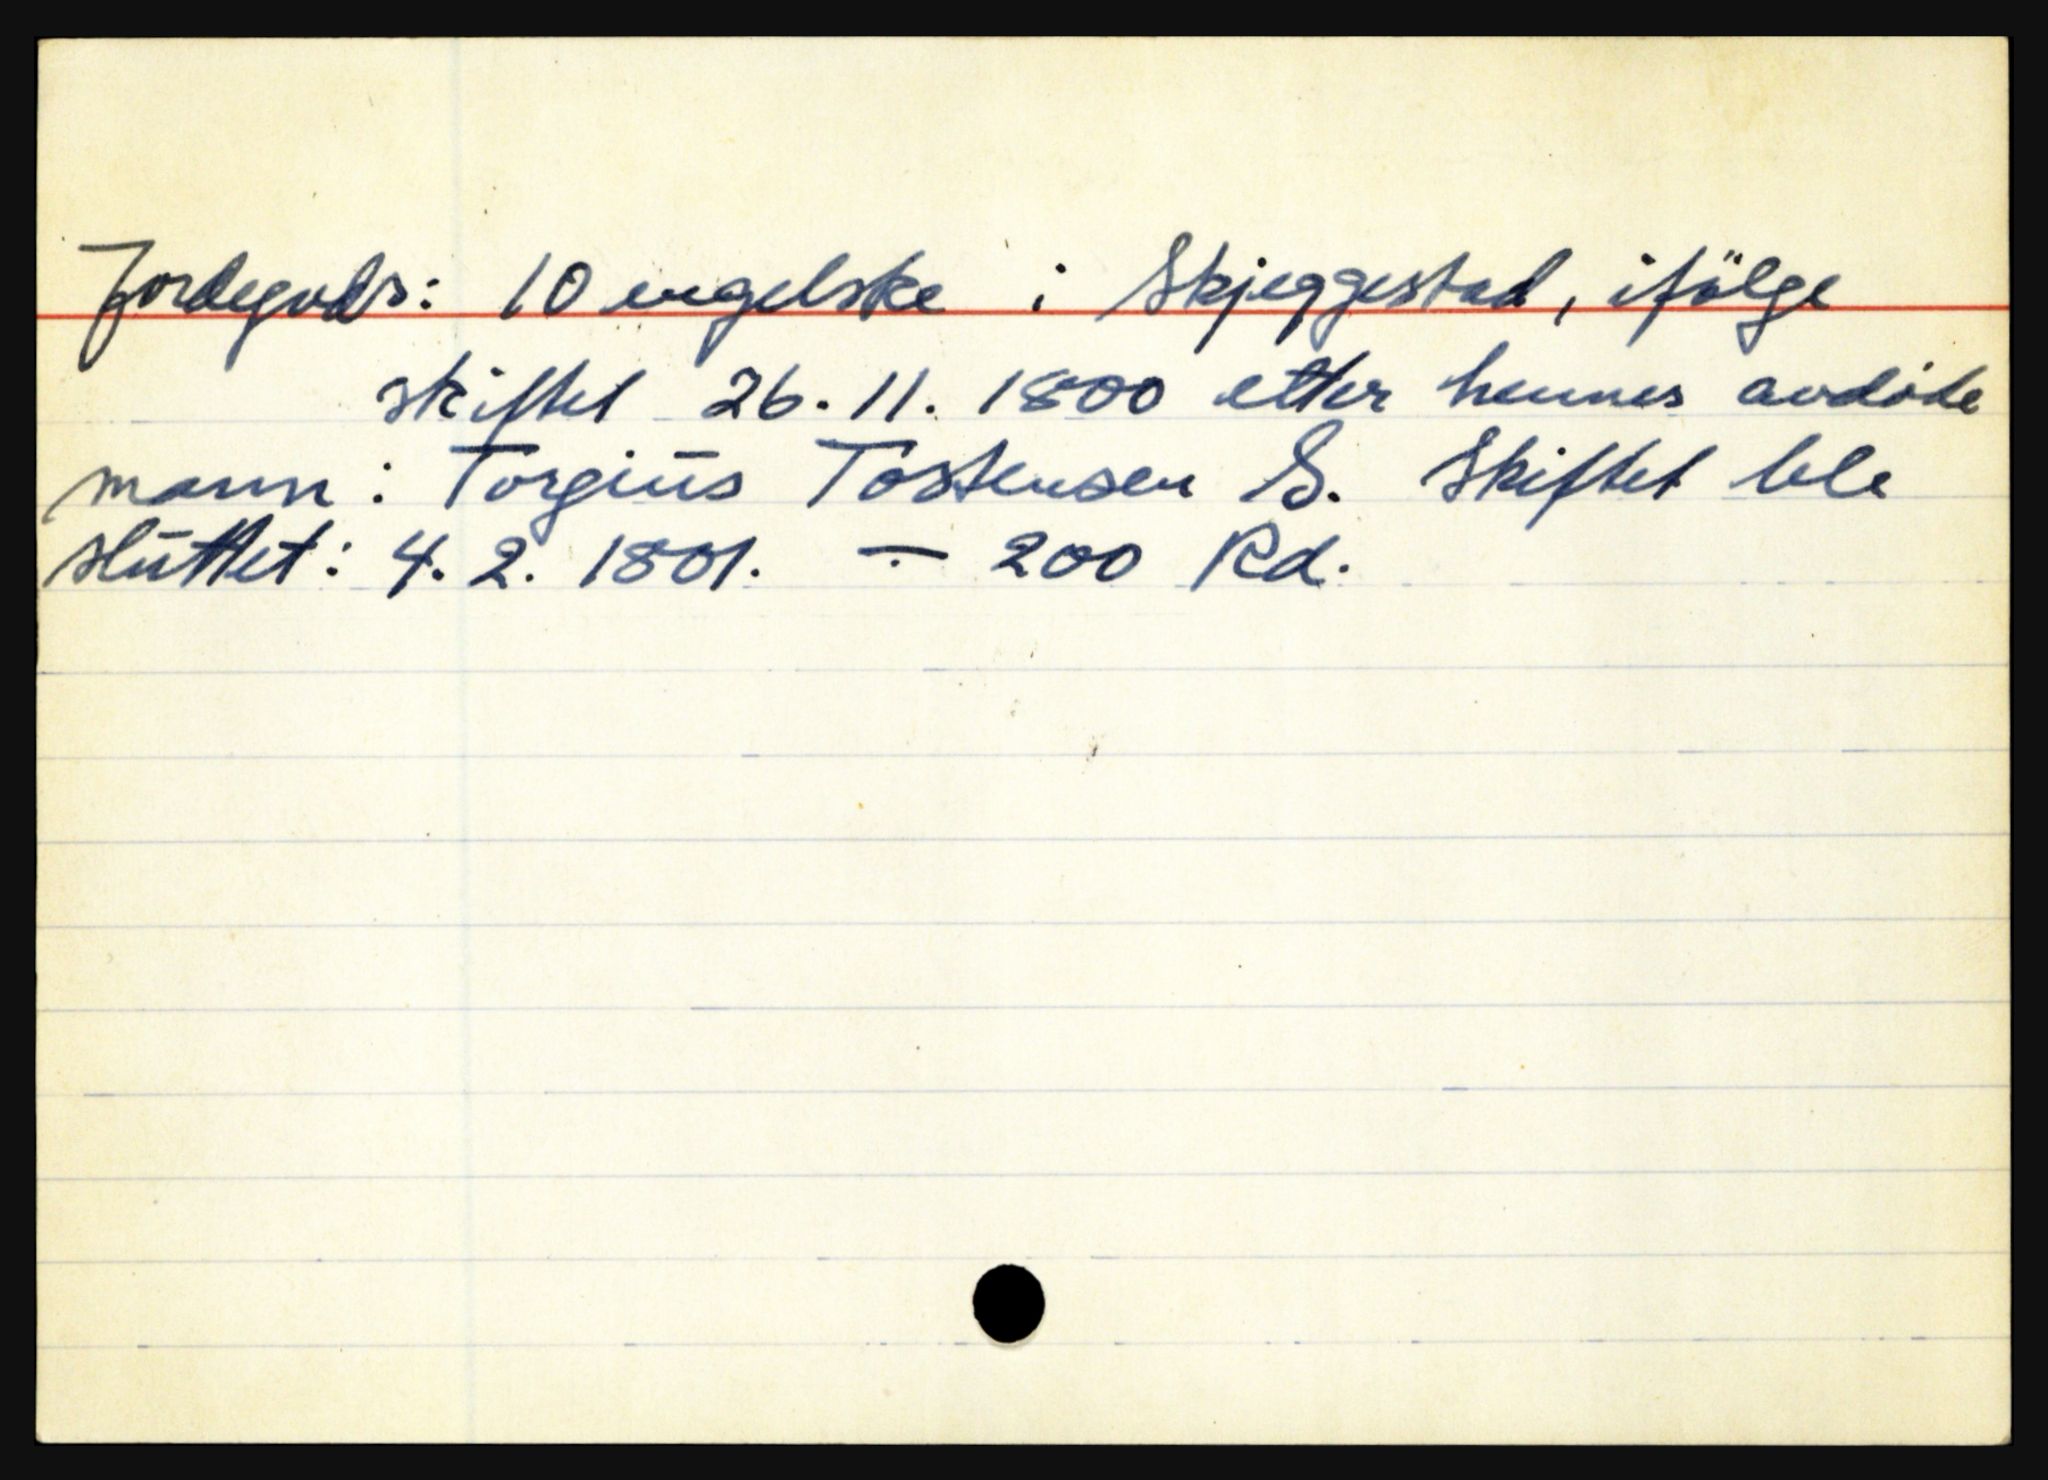 Jordegods: 10 engelske i Skjeggestad, ifölge
skiftet 26.11.1800 etter hennes avdöde
mann: Torgius Tostensen S. Skiftet ble
sluttet: 4.2.1801. — 200 Rd.